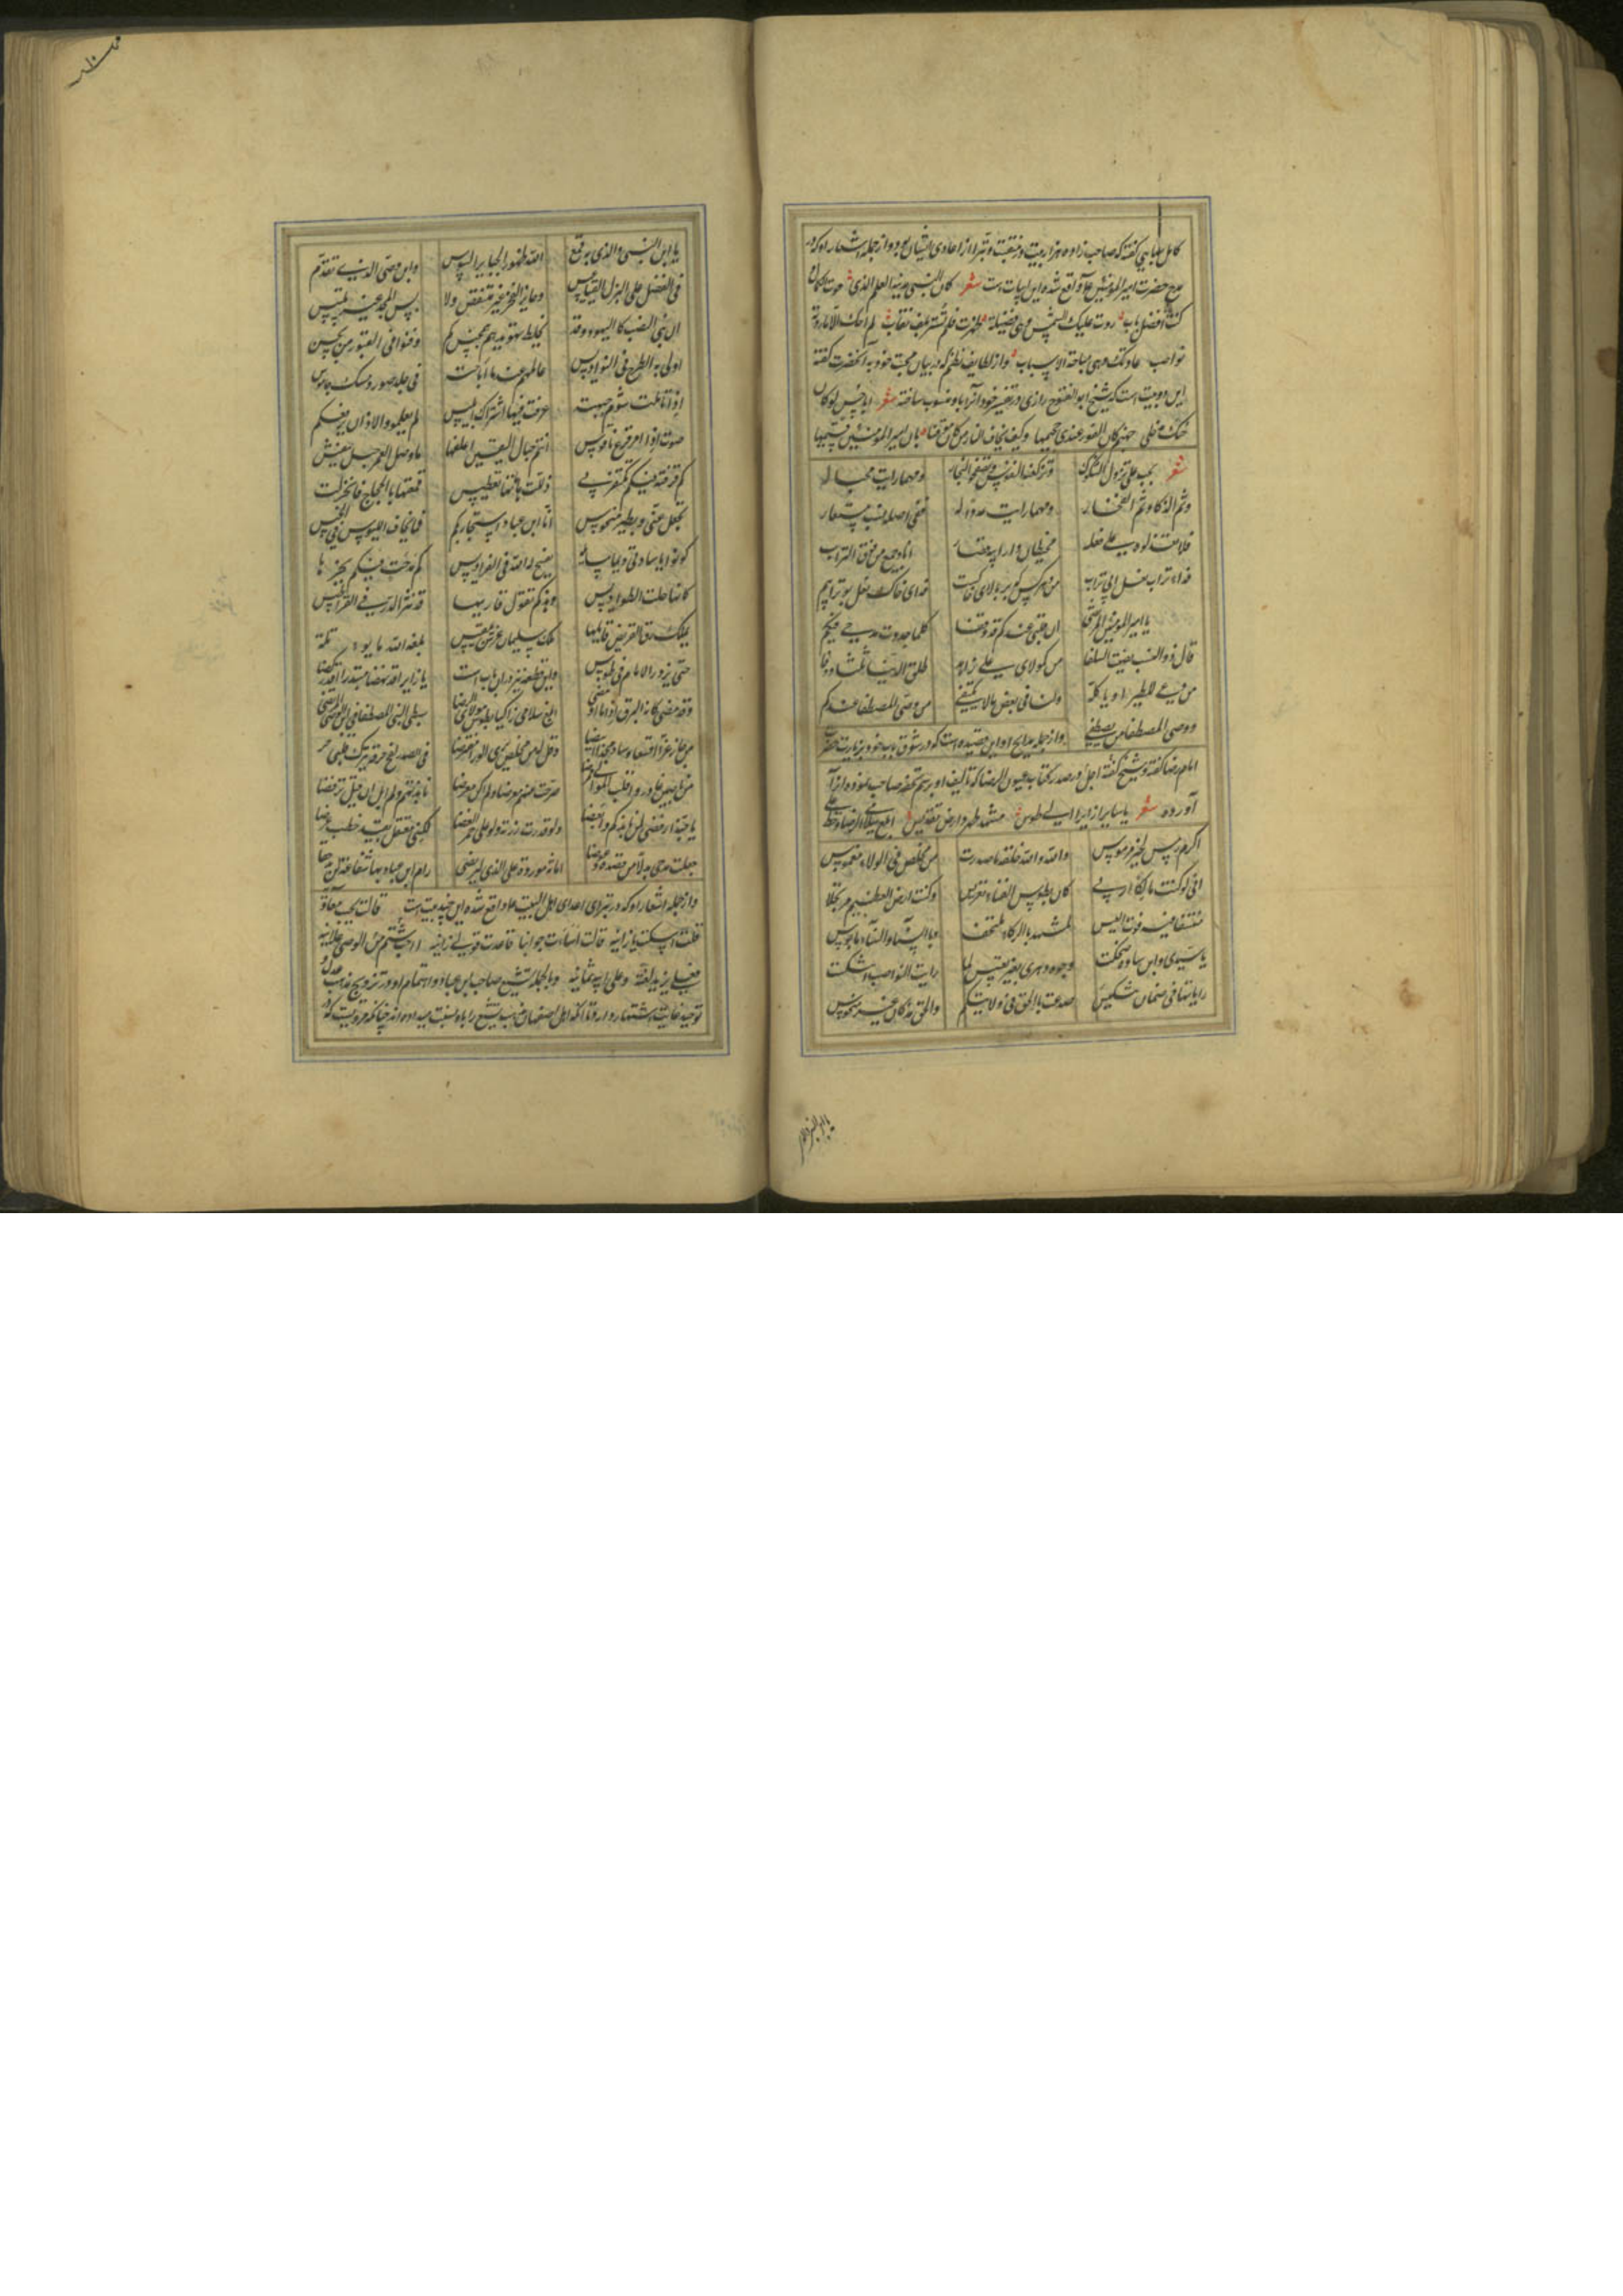 کامل بهایی گفته که صاحب را ده هزار بیت در منقبت و تبرا از اعادی ایشان بود و از جمله اشعار او که در
مدح حضرت امیر المؤمنین علی واقع شده این ابیات است شعر کان النبی مدینة العلم الذی حوت الکمال
کنت افضل باب ردت علیک الشمس و هی فضیلة ظهرت فلم تستر بلف نقاب لم احک الا ما روته
نواصب عادتک و هی مباحة الاسباب و از لطایف نظم که در بیان محبت خود به آنحضرت گفته
این دو بیت است که شیخ ابو الفتوح رازی در تفسیر خود آنرا باو منسوب ساخته شعر ابا حسن لو کان
حبک مدخلی جهنم کان الفوز عندی جحیمها و کیف یخاف النار من کان موقنا بان امیر المؤمنین قسیمها
شعر بحب علی تزول الشکوک و تزکو النفوس و تصفو النجار و مهما رایت محبا له
فثم الذکاء و ثم الفخار و مهما رایت عدوا له ففی اصله نسب مستعار
فلا تعذلوه علی فعله فحیطان دار ابیه قصار انا و جمیع من فوق التراب
فداء تراب نعل ابی تراب من و هر کس که بر بالای خاکست فدای خاک نعل بو ترابیم
یا امیر المؤمنین المرتضی ان قلبی عندکم قد وقفا کلما جددت مدحی فیکم
قال ذو النصب نسیت السلفا من کمولای علی زاهد طلق الدنیا ثلثا و وفا
من دعی للطیر ان یاکله ولنا فی بعض هذا مکتفی من وصی المصطفی عندکم
و وصی المصطفی من یصطفی و از جمله مدایح او این قصیده است که در شوق باب خود بزیارت حضرت
امام رضا گفته و شیخ اجل در صدر کتاب عیون الرضا که تالیف او برسم تحفه صاحب نموده آنرا
آورده شعر یا سایرا زایرا الی طوس مشهد طهر و ارض تقدیس ابلغ سلامی الرضا و حط علی
اکرم رمس لخیر مرموس والله والله حلفة صدرت من مخلص فی الولاء مغموس
انی لو کنت مالکا اربی کان بطوس الفناء تعریسی و کنت امضی العزیم مرتحلا
منتسفا فیه قوة العیس لمشهد بالذکاء ملتحف و بالسناء و الثناء مانوس
یا سیدی و ابن سادتی ضحکت وجوه دهری بعقب تعبیس لما رایت النواصب انتکست
رایاتها فی زمان تنکیس صدعت بالحق فی ولائکم والحق مذ کان غیر منحوس
یا ابن النبی
یا ابن النبی والذی به قمع الله ظهور الجبابر الشوس و ابن وصی الذی تقدم
فی الفضل علی البزل القناعیس و حایز الفخر غیر منتقص و لا بس المجد غیر تلبیس
ان بنی النصب کالیهود و قد یخلط تهویدهم بتمجیس کم دفنوا فی القبور من نجس
اولی به الطرح فی النواویس عالمهم عند ما اباحثه فی جلد ثور و مسک جاموس
اذا تاملت شوم جبهته عرفت فیها اشتراک ابلیس لم یعلموا و الاذان یرفعکم
صوت اذان ام قرع ناقوس انتم حبال الیقین اعلقها ما وصل العمر حبل تنفیس
کم فرقة فیکم تکفرنی ذللت هاماتها بفطیس قمعتها بالحجاج فانخزلت
تجفل عنی بطیر منحوس ان ابن عباد استجار بکم فما یخاف اللیوث فی الخیس
کونوا یا سادتی وسایله یفسح له الله فی الفرادیس کم مدحة فیکم یحبرها
کانها حلت الطواویس و هذه کم تقول قارئها قد نثر الدر فی القراطیس
یملک رق القریض قایلها ملک سلیمان عرش بلقیس بلغه الله ما یومله
حتی یزور الامام فی طوس و این قطعه نیز در آن باب است یا زایرا قد نهضا مبتدرا قد رکضا
و قد مضی کانه البرق اذا ما اومضا ابلغ سلامی زاکیا بطوس مولای الرضا سبط النبی المصطفی و ابن الوصی المرتضی
من حاز عزا اقعسا و شاد مجدا ابیضا و قل له من مخلص یری الولا مفترضا فی الصدر لفح حرقة یترک قلبی حرضا
من ناصبین غادروا قلب الموالی ممرضا صرحت عنهم معرضا و لم اکن معرضا نابذتهم و لم ابل ان قیل قد ترفضا
یا حبذا رفضی لمن نابذکم و ابغضا و لو قدرت زرته و لو علی جمر الغضا لکننی معتقل بقید خطب عرضا
جعلت مدحی بدلا من قصده و عوضا امانة موردة علی الرضا لیرتضی رام ابن عباد بها شفاعة لن تدحضا
و از جمله اشعار او که در تبرای اعدای اهل البیت علیهم السلام واقع شده این چند بیت است قالت تحب معاویة
قلت اسکتی یا زانیة قالت اسأت جوابنا فاعدت قولی زانیة ا احب شتم الوصی علانیة
فعلی یزید لعنة و علی ابیه ثمانیة و بالجمله تشیع صاحب ابن عباد و اهتمام او در ترویج مذهب عدل و
توحید غایت اشتهار دارد تا آنکه اهل اصفهان مذهب تشیع را باو نسبت میداده اند چنانکه مرویست که در